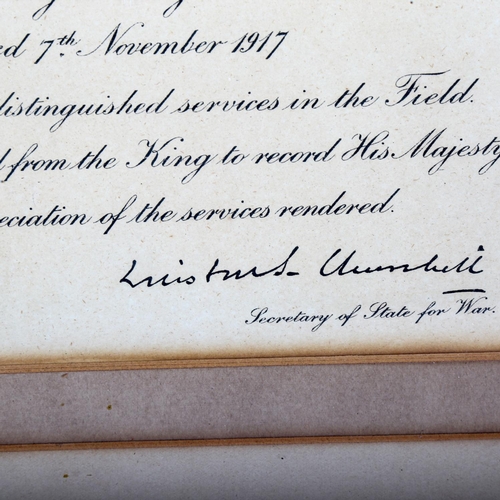 ed 7th November 1917
distinguished services in the Field.
d from the King to record His Majesty
eciation of the services rendered.
Winston S. Churchill
Secretary of State for War.